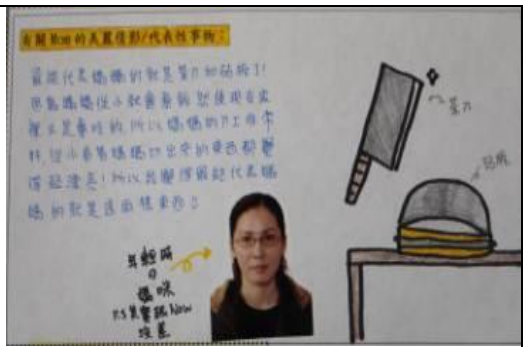 有關Mom的美麗倩影/代表性事物：
最能代表媽媽的就是菜刀和砧板了!
因為媽媽從小就會煮飯,然後現在家
裡又是賣吃的,所以媽媽的刀工非常
好,從小看著媽媽切出來的東西都覺
得超漂亮!所以我覺得最能代表媽
媽的就是這兩樣東西!
菜刀
年輕時
的
媽咪
P.S其實跟Now
沒差